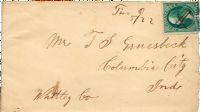 5/22
Mr T S Gruesbeck
Columbia City
Ind
Whitley Co